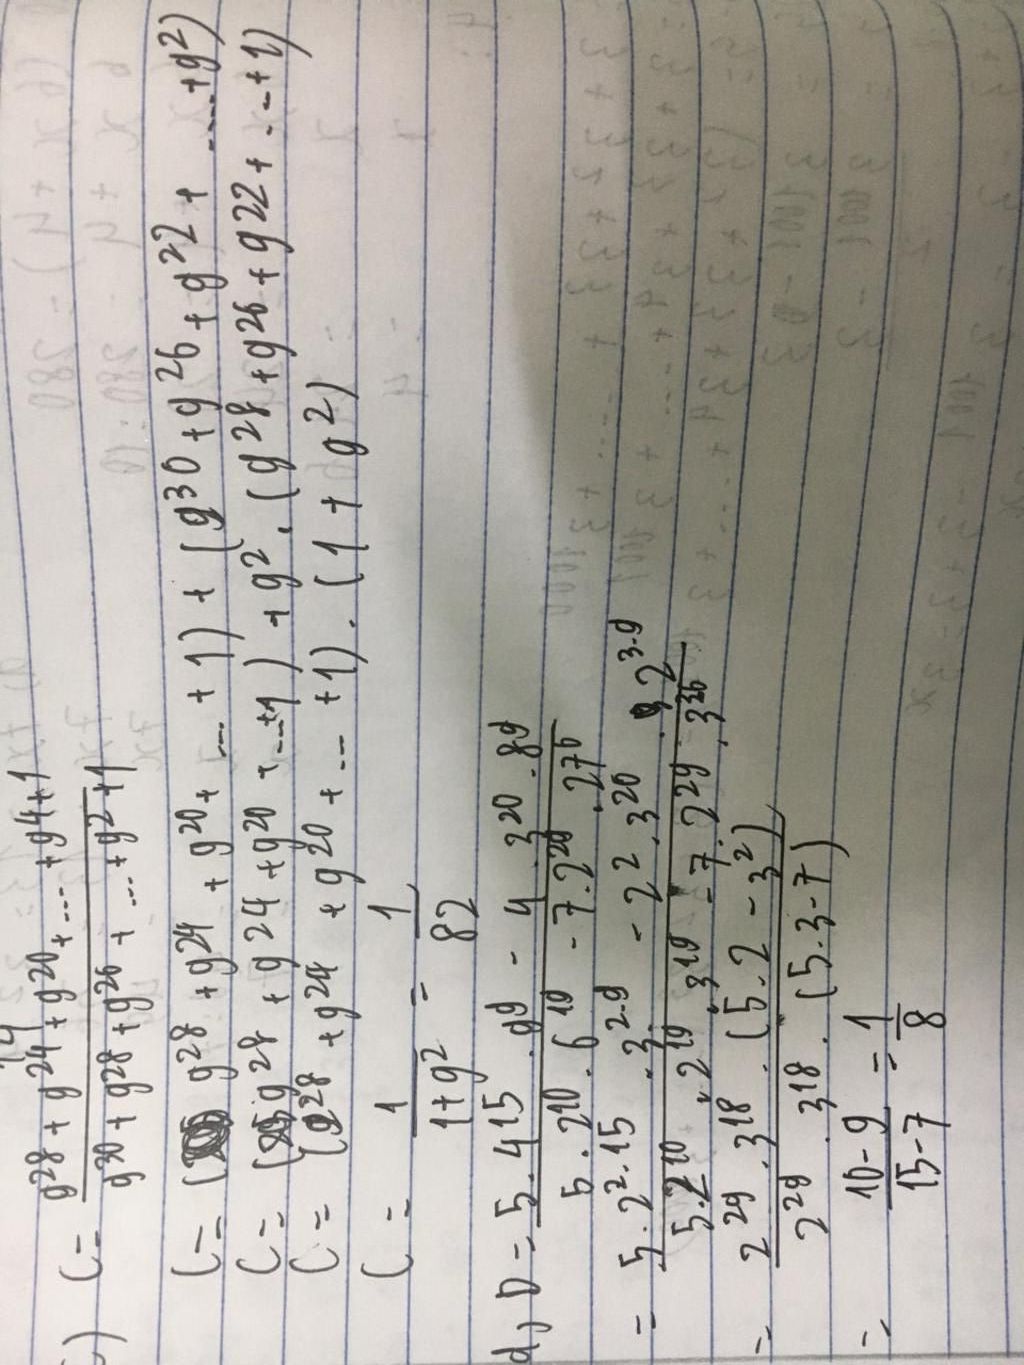 c) C = 9^28 + 9^24 + 9^20 + .... + 9^4 + 1
9^30 + 9^28 + 9^26 + ... + 9^2 + 1
C = ( 9^28 + 9^24 + 9^20 + ... + 1) + (9^30 + 9^26 + 9^22 + .... + 9^2)
C = ( 9^28 + 9^24 + 9^20 + ... + 1) + 9^2 . (9^28 + 9^26 + 9^22 + ... + 1)
C = (9^28 + 9^24 + 9^20 + ... + 1) . (1 + 9^2)
C = 1/(1+9^2) = 1/82
d, D = 5 . 4^15 . 9^9 - 4 . 3^20 . 8^9
5 . 2^10 . 6^19 - 7 . 2^29 . 27^6
= 5 . 2^2.15 . 3^2.9 - 2^2 . 3^20 . 2^3.9
5 . 2^10 . 2^19 . 3^19 - 7 . 2^29 . 3^3.6
= 2^29 . 3^18 . (5 . 2 - 3^2)
2^29 . 3^18 . (5 . 3 - 7)
= (10 - 9)/(15 - 7) = 1/8